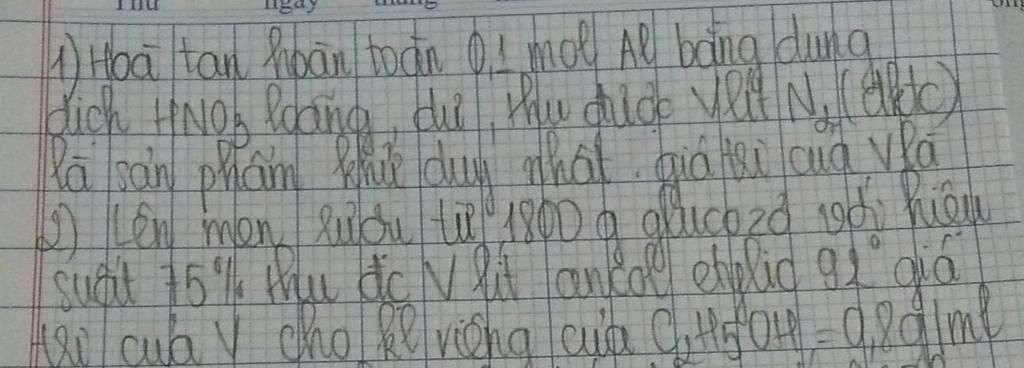 Thứ ngày tháng
1) Hoà tan hoàn toàn 0,1 mol Al bằng dung
dịch HNO3 loãng, dư, thu được V lít N2 (đktc)
là sản phẩm khử duy nhất. giá trị của V là
2) Lên men rượu từ 1800 g glucozơ với hiệu
suất 75% thu đc V lít ancol etylic 92° giá
trị của V cho kl riêng của C2H5OH = 0,8g/ml